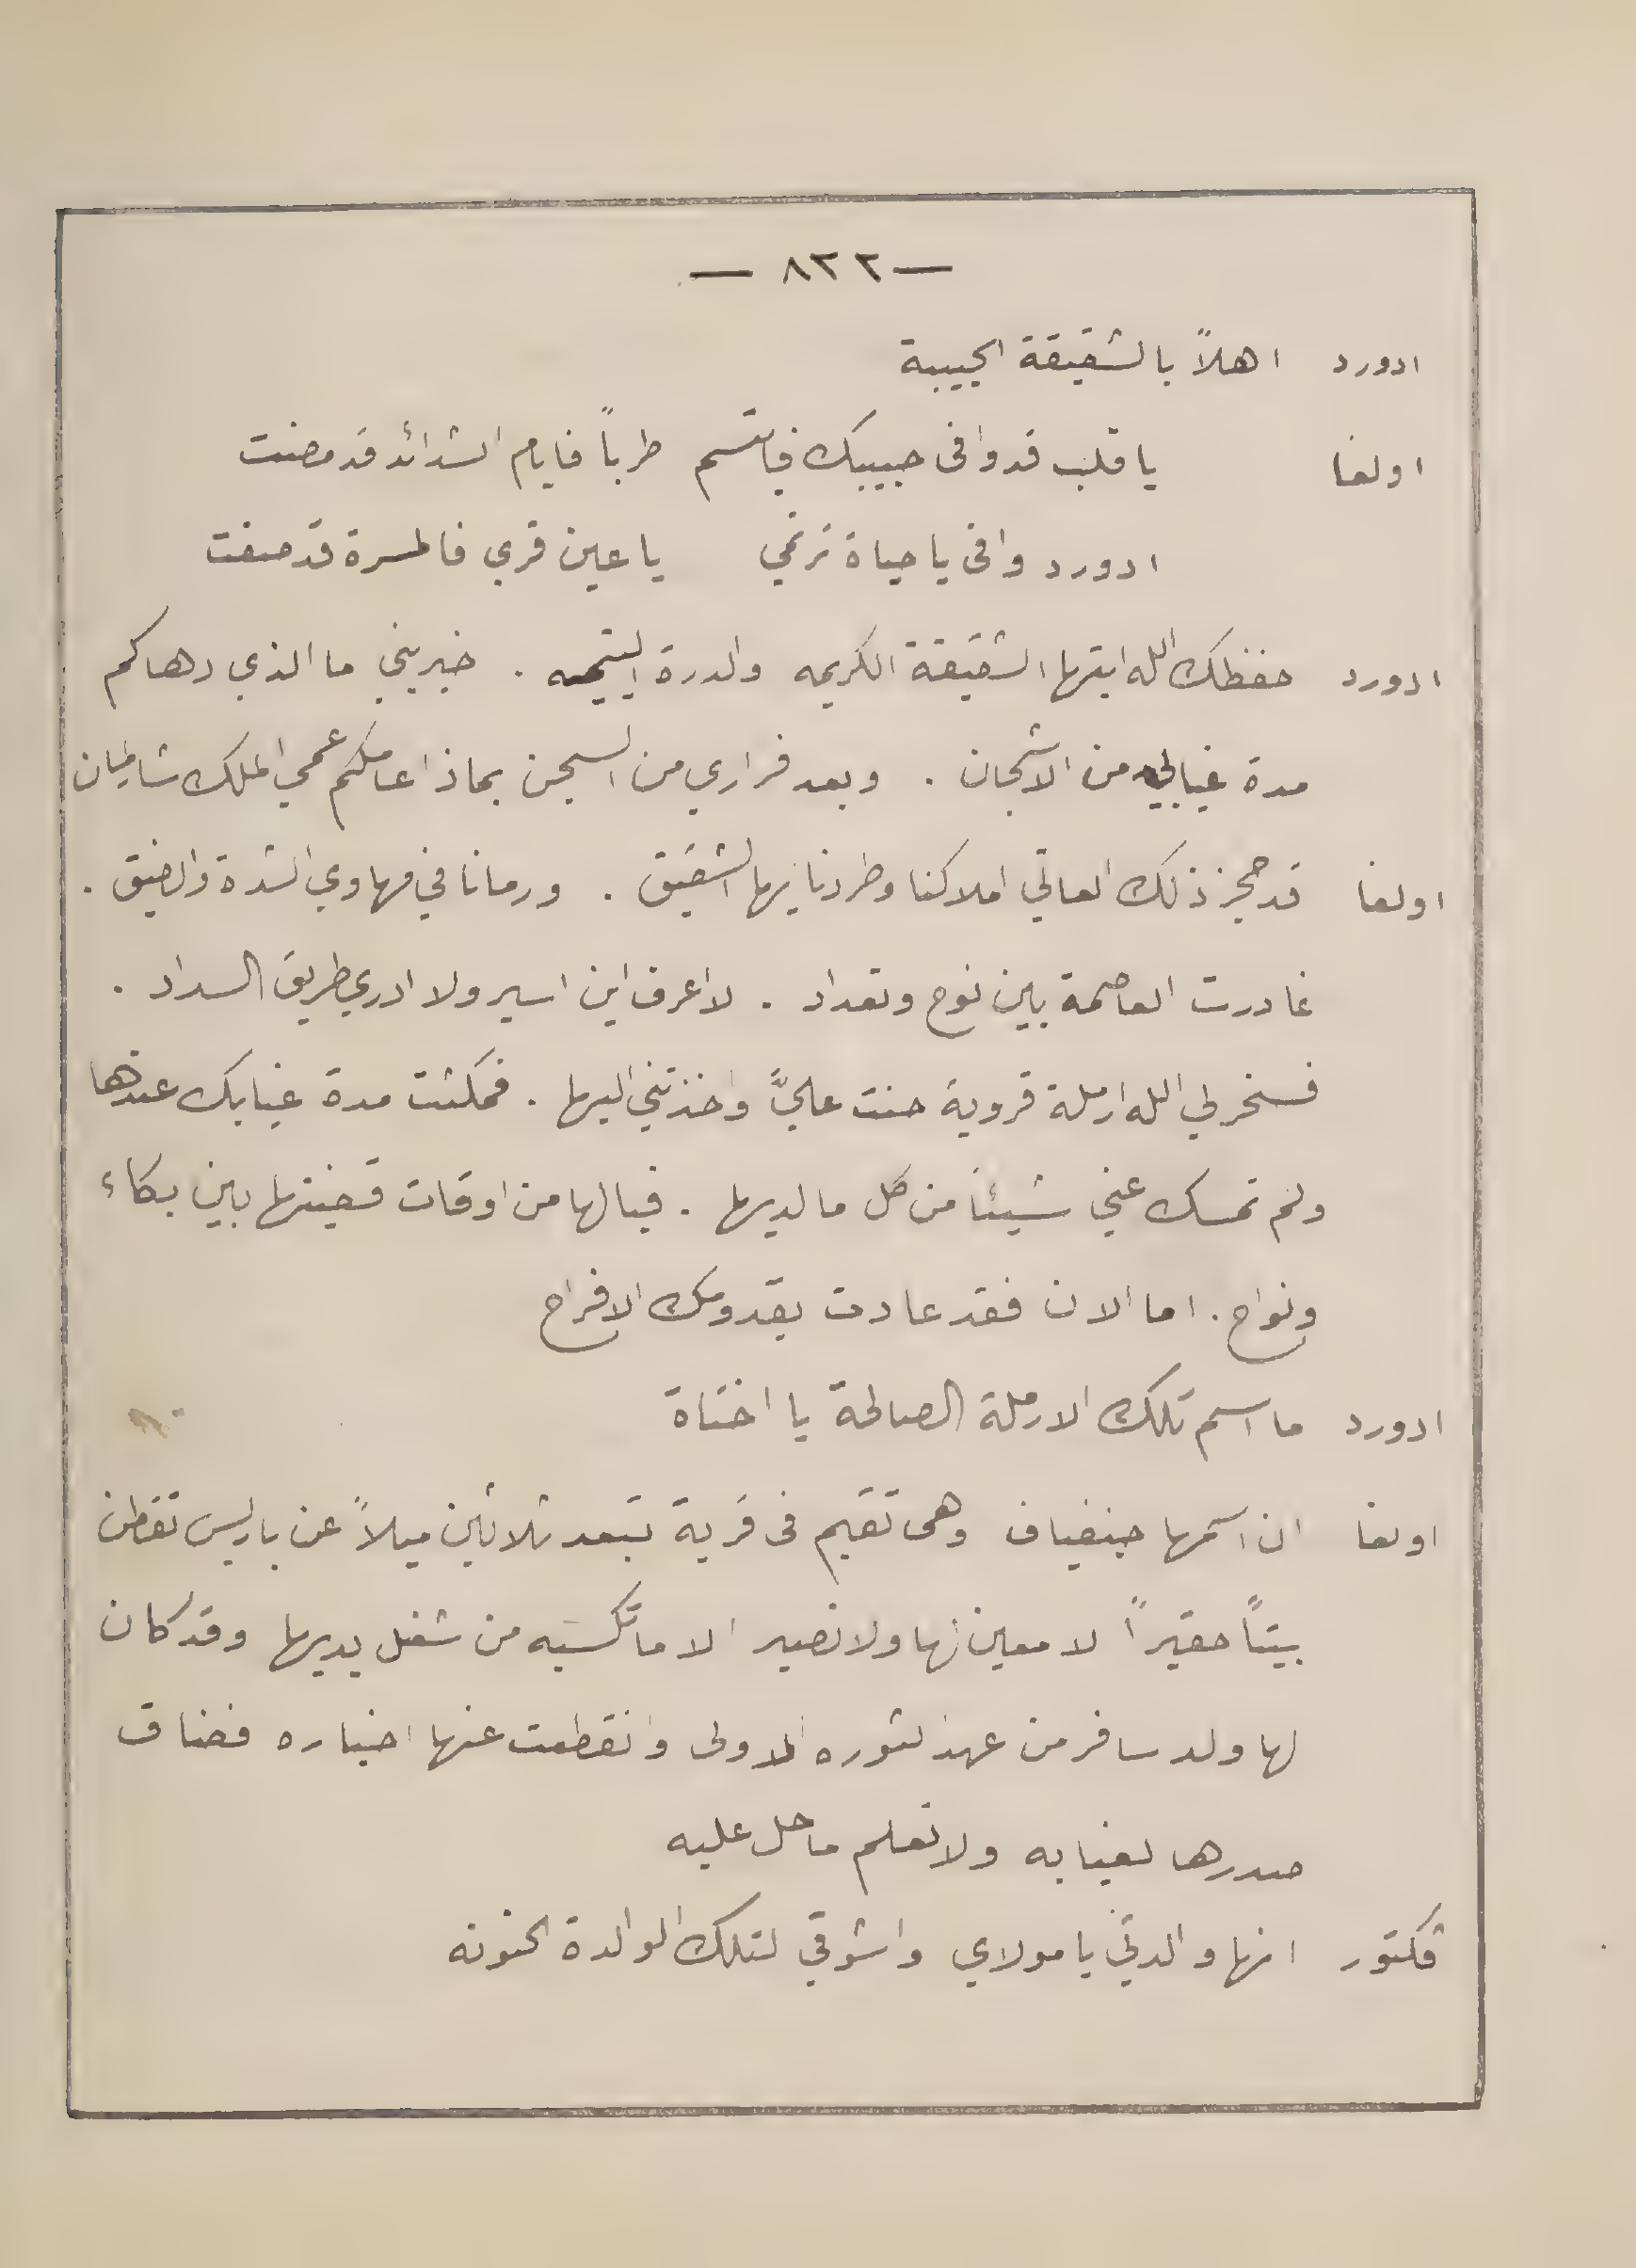 — ٨٢٢ —
ادورد اهلاً بالشقيقة الحبيبة
اولغا يا قلب قد وافى حبيبك فابتسم طرباً فايام الشدائد قد مضت
ادورد وافى يا حياة ترنمي يا عين قري فالمسرة قد صفت
ادورد حفظك الله ايتها الشقيقة الكريمه والدرة اليتيمه . خبريني ما الذي دهاكم
مدة غيابي من الاشجان . وبعد فراري من السجن بماذا عاملكم عمي الملك شارلمان
اولغا قد حجز ذلك العاتي املاكنا وطردنا ايها الشقيق . ورمانا في مهاوي الشدة والضيق .
غادرت العاصمة بين نوح وتعداد . لا اعرف اين اسير ولا ادري طريق السداد .
فسخر لي الله ارملة قروية حنت عليَّ واخذتني اليها . فمكثت مدة غيابك عندها
ولم تمسك عني شيئاً من كل ما لديها . فيا لها من اوقات قضيتها بين بكاء
ونواح . اما الان فقد عادت بقدومك الافراح
ادورد ما اسم تلك الارملة الصالحة يا اختاة
اولغا ان اسمها جنفياف وهى تقيم فى قرية تبعد ثلاثين ميلاً عن باريس تقطن
بيتاً حقيراً لا معين لها ولا نصير الا ما تكسبه من شغل يديها وقد كان
لها ولد سافر من عهد الثوره الاولى وانقطعت عنها اخباره فضاق
صدرها لغيابه ولا تعلم ما حل عليه
ڤكتور انها والدتي يا مولاي واشوقي لتلك الوالدة الحنونه